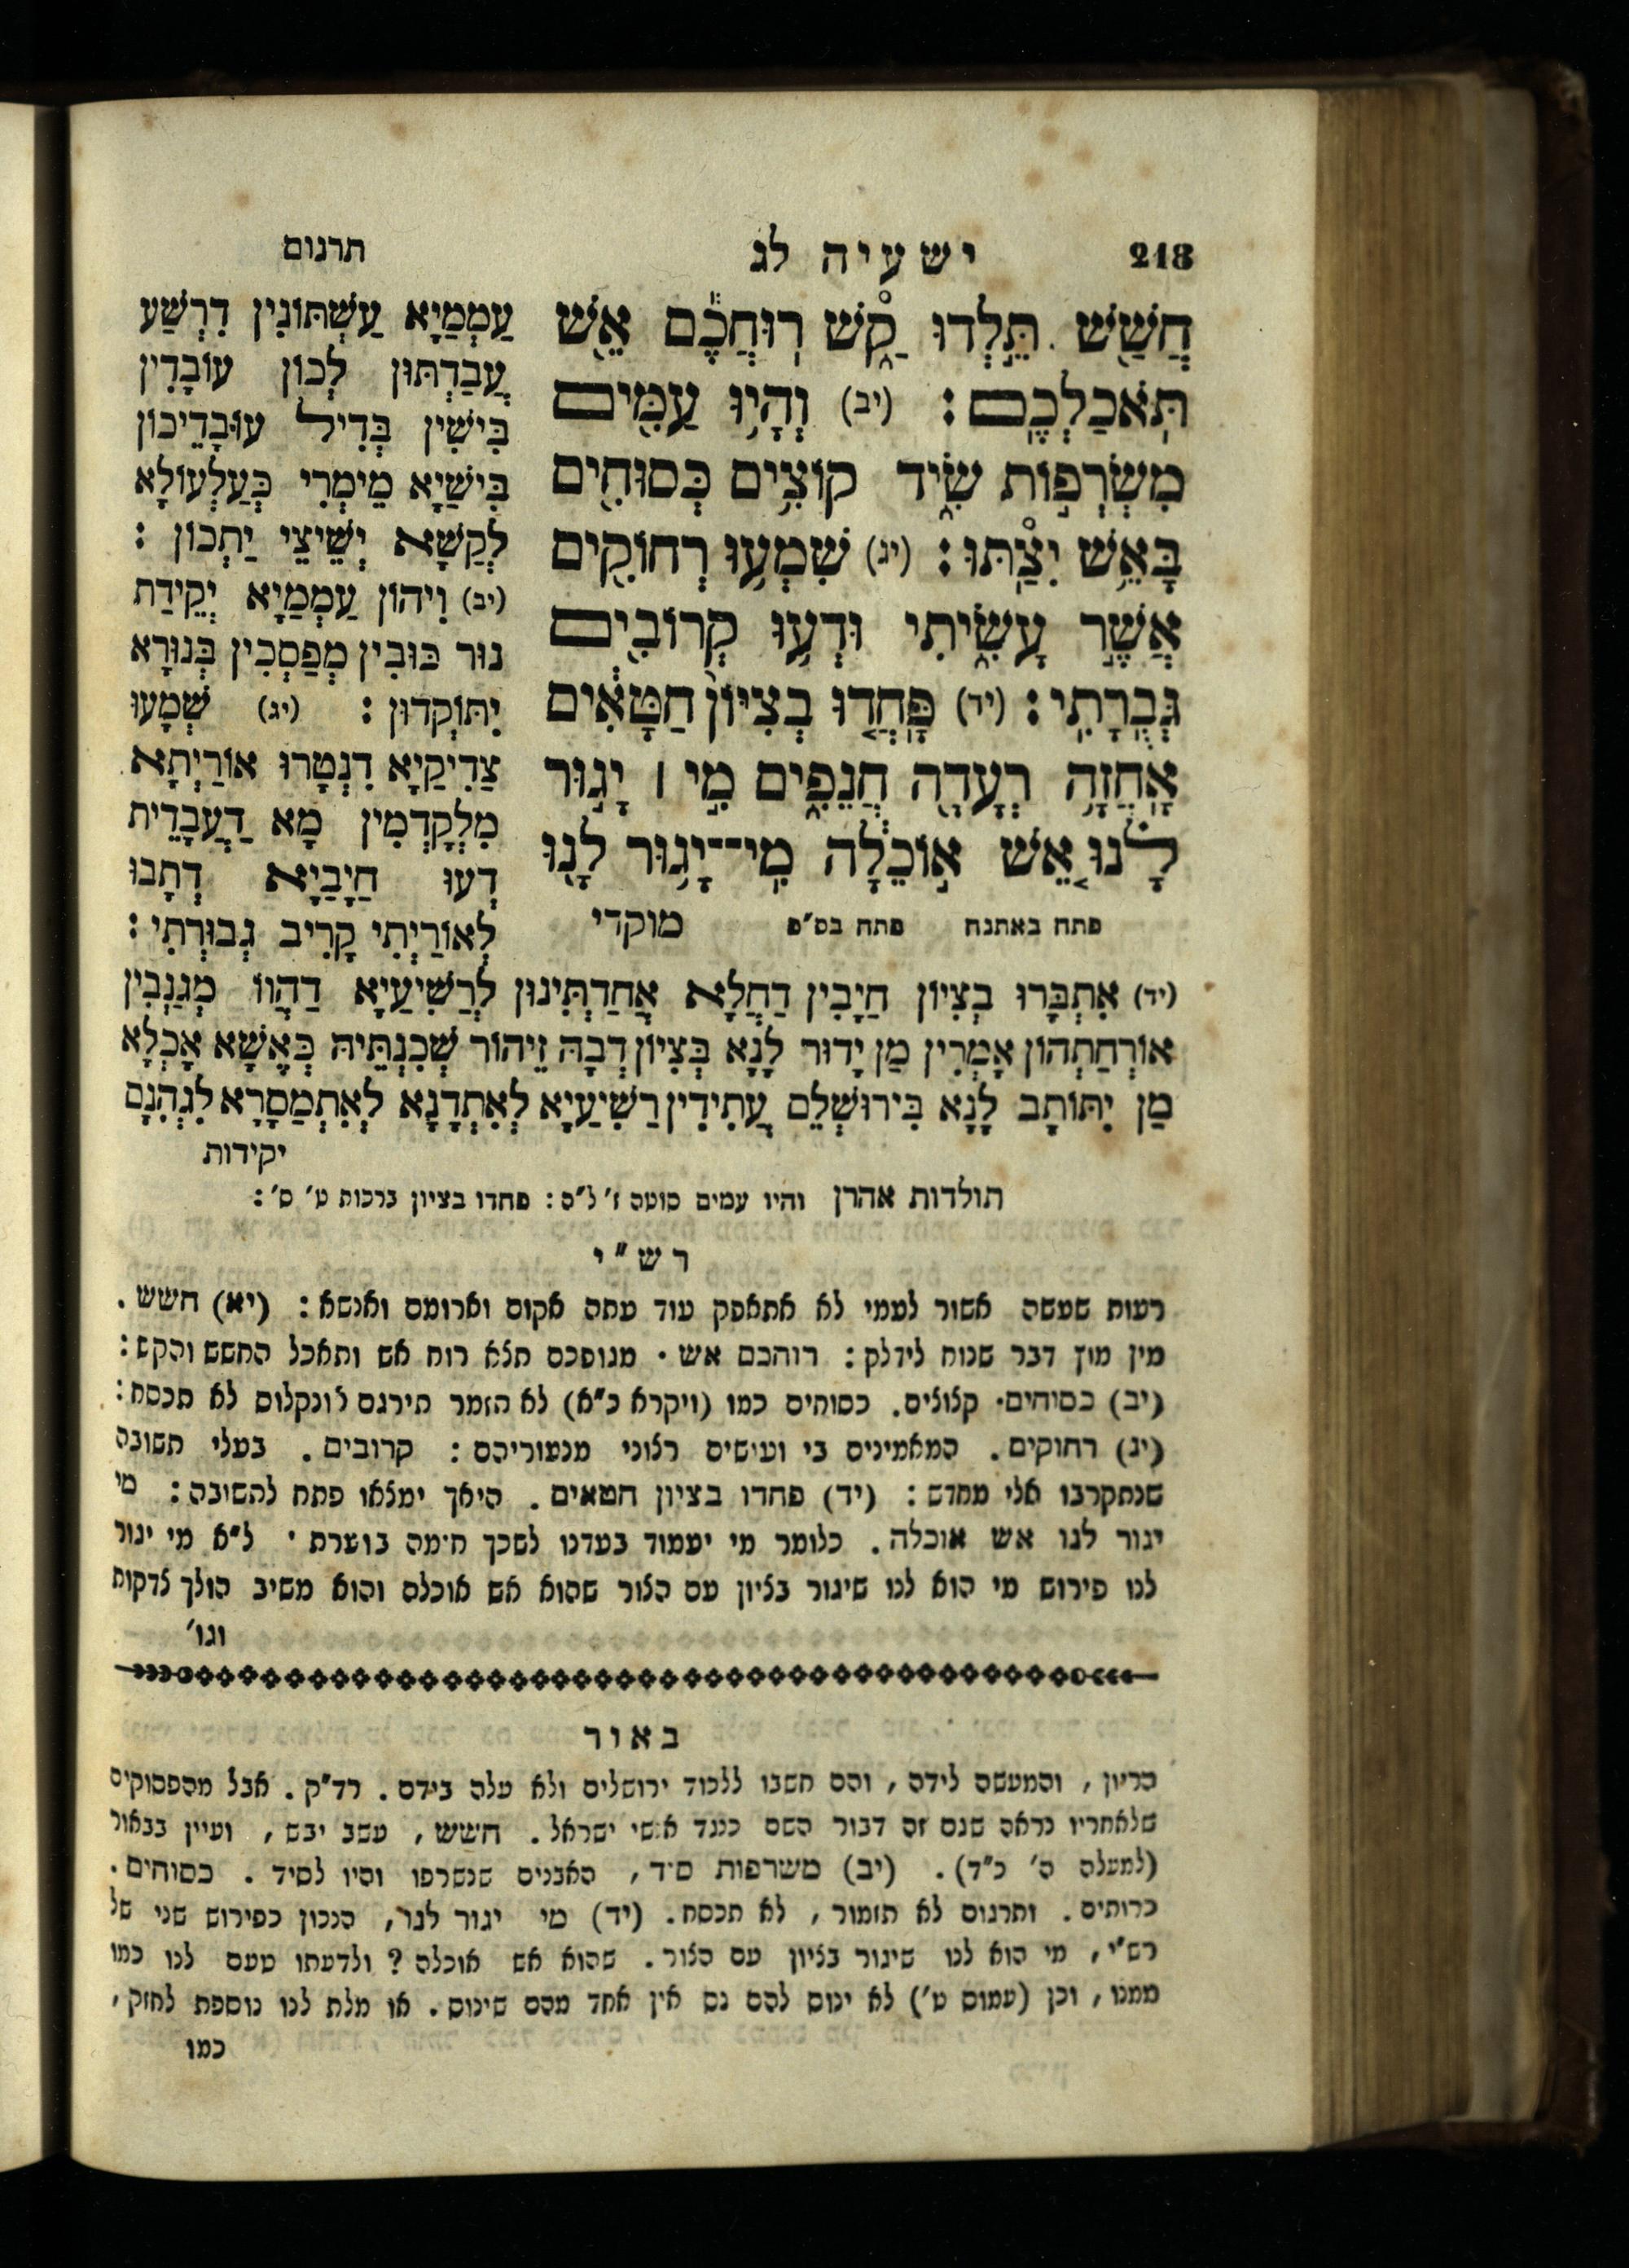 218 ישעיה לג תרגום
חֲשַׁ֖שׁ תֵּ֣לְדוּ קַ֑שׁ רוּחֲכֶ֕ם אֵ֖שׁ
תֹּאכַלְכֶֽם׃ (יב) וְהָי֥וּ עַמִּ֖ים
מִשְׂרְפ֣וֹת שִׂ֑יד קוֹצִ֥ים כְּסוּחִ֖ים
בָּאֵ֥שׁ יִצַּֽתּוּ׃ (יג) שִׁמְע֥וּ רְחוֹקִ֖ים
אֲשֶׁ֣ר עָשִׂ֑יתִי וּדְע֥וּ קְרוֹבִ֖ים
גְּבֻרָתִֽי׃ (יד) פָּֽחֲד֤וּ בְצִיּוֹן֙ חַטָּאִ֔ים
אָֽחֲזָ֥ה רְעָדָ֖ה חֲנֵפִ֑ים מִ֣י ׀ יָג֣וּר
לָ֗נוּ אֵ֚שׁ א֣וֹכֵלָ֔ה מִֽי־יָג֥וּר לָ֖נוּ
פתח באתנח פתח בס״פ מוקדי
עַמְמַיָא עַשְׁתּוֹנִין דִרְשַׁע
עֲבַדְתּוּן לְכוֹן עוֹבָדִין
בִּישִׁין בְּדִיל עוּבָדֵיכוֹן
בִּישַׁיָא מֵימְרִי כְּעַלְעוֹלָא
לְקַשָׁא יְשֵׁיצֵי יַתְכוֹן׃
(יב) וִיהוֹן עַמְמַיָא יְקֵידַת
נוּר כּוּבִין מְפַסְכִין בְּנוּרָא
יִתּוֹקְדוּן׃ (יג) שְׁמָעוּ
צַדִיקַיָא דִנְטָרוּ אוֹרַיְתָא
מִלְקָדְמִין מָא דַעֲבָדֵית
דְעוּ חַיָבַיָא דְתָבוּ
לְאוֹרַיְתִי קָרִיב גְבוּרְתִי׃
(יד) אִתְבָּרוּ בְצִיוֹן חַיָבִין דַחֲלָא אֲחַדְתִּינוּן לְרַשִׁיעַיָא דַהֲווֹ מְגַנְבִין
אוֹרְחַתְהוֹן אָמְרִין מַן יָדוּר לָנָא בְּצִיוֹן דְבָהּ זֵיהוֹר שְׁכִנְתֵּיהּ כְּאֶשָׁא אָכְלָא
מַן יִתּוֹתָב לָנָא בִּירוּשְׁלֵם עֲתִידִין רַשִׁיעַיָא לְאִתְדָנָא לְאִתְמַסָרָא לְגֵהִנָם
יקידות
תולדות אהרן והיו עמים סוטה ז׳ ל״ה: פחדו בציון ברכות ט׳ ס׳:
רש״י
רעות שעשה אשור לעמי לא אתאפק עוד עתה אקום וארומם ואנשא: (יא) חשש.
מין מוץ דבר שנוח לידלק: רוחכם אש. מגופכם תלא רוח אש ותאכל החשש והקש:
(יב) כסוחים. קלולים. כסוחים כמו (ויקרא כ״א) לא הזמר תירגם אונקלוס לא תכסח:
(יג) רחוקים. המאמינים בי ועושים רצוני מנעוריהם: קרובים. בעלי תשובה
שנתקרבו אלי מחדש: (יד) פחדו בציון חטאים. היאך ימלאו פתח לתשובה: מי
יגור לנו אש אוכלה. כלומר מי יעמוד בעדנו לשכך חימה בוערת. ל״א מי יגור
לנו פירוש מי הוא לנו שיגור בציון עם הצור שהוא אש אוכלה והוא משיב הולך צדקות
וגו׳
באור
הריון, והמעשה לידה, והם חשבו ללכוד ירושלים ולא עלה בידם. רד״ק. אבל מהפסוקים
שלאחריו נראה שגם זה דבור השם כנגד אנשי ישראל. חשש, עשב יבש, ועיין בבאור
(למעלה ה׳ כ״ד). (יב) משרפות סיד, האבנים שנשרפו והיו לסיד. כסוחים.
כרותים. ותרגום לא תזמור, לא תכסח. (יד) מי יגור לנו, הנכון כפירוש שני של
רש״י, מי הוא לנו שיגור בציון עם הצור. שהוא אש אוכלה? ולדעתו טעם לנו כמו
ממנו, וכן (עמוס ט׳) לא ינוס להם נס אין אחד מהם שינוס. או מלת לנו נוספת לחזק,
כמו